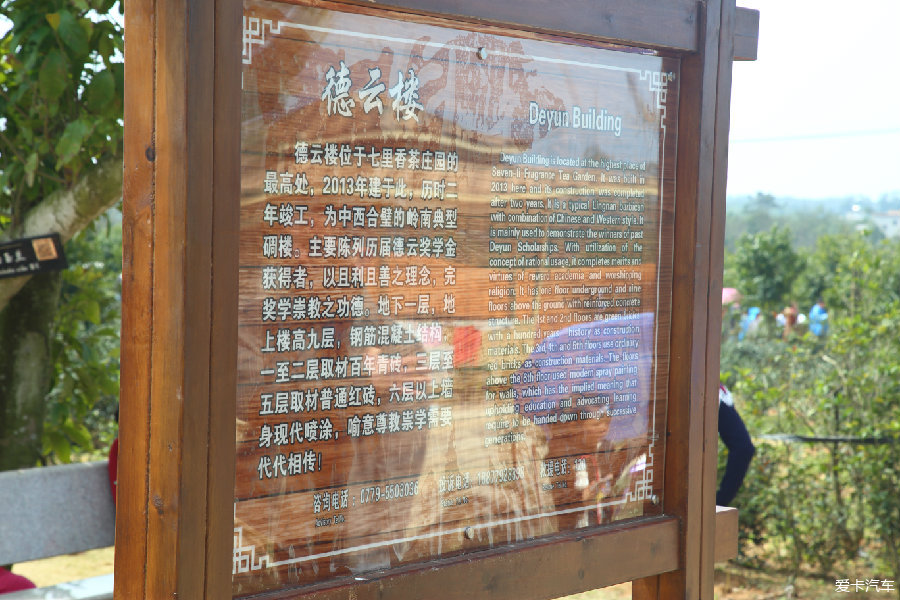 德云楼
德云楼位于七里香茶庄园的
最高处，2013年建于此，历时二
年竣工，为中西合璧的岭南典型
碉楼。主要陈列历届德云奖学金
获得者，以且利且善之理念，完
奖学崇教之功德。地下一层，地
上楼高九层，钢筋混凝土结构，
一至二层取材百年青砖，三层至
五层取材普通红砖，六层以上墙
身现代喷涂，喻意尊教崇学需要
代代相传！
Deyun Building
Deyun Building is located at the highest place of
Seven-li Fragrance Tea Garden. It was built in
2013 here and its construction was completed
after two years. It is a typical Lingnan barbacan
with combination of Chinese and Western style. It
is mainly used to demonstrate the winners of past
Deyun Scholarships. With utilization of the
concept of rational usage, it completes merits and
virtues of reward academia and worshipping
religion. It has one floor underground and nine
floors above the ground with reinforced concrete
structure. The 1st and 2nd floors are green bricks
with a hundred years' history as construction
materials. The 3rd, 4th and 5th floors use ordinary
red bricks as construction materials. The floors
above the 6th floor used modern spray painting
for walls, which has the implied meaning that
upholding education and advocating learning
require to be handed down through successive
generations.
咨询电话：0779-5803036
投诉电话：
救援电话：
爱卡汽车